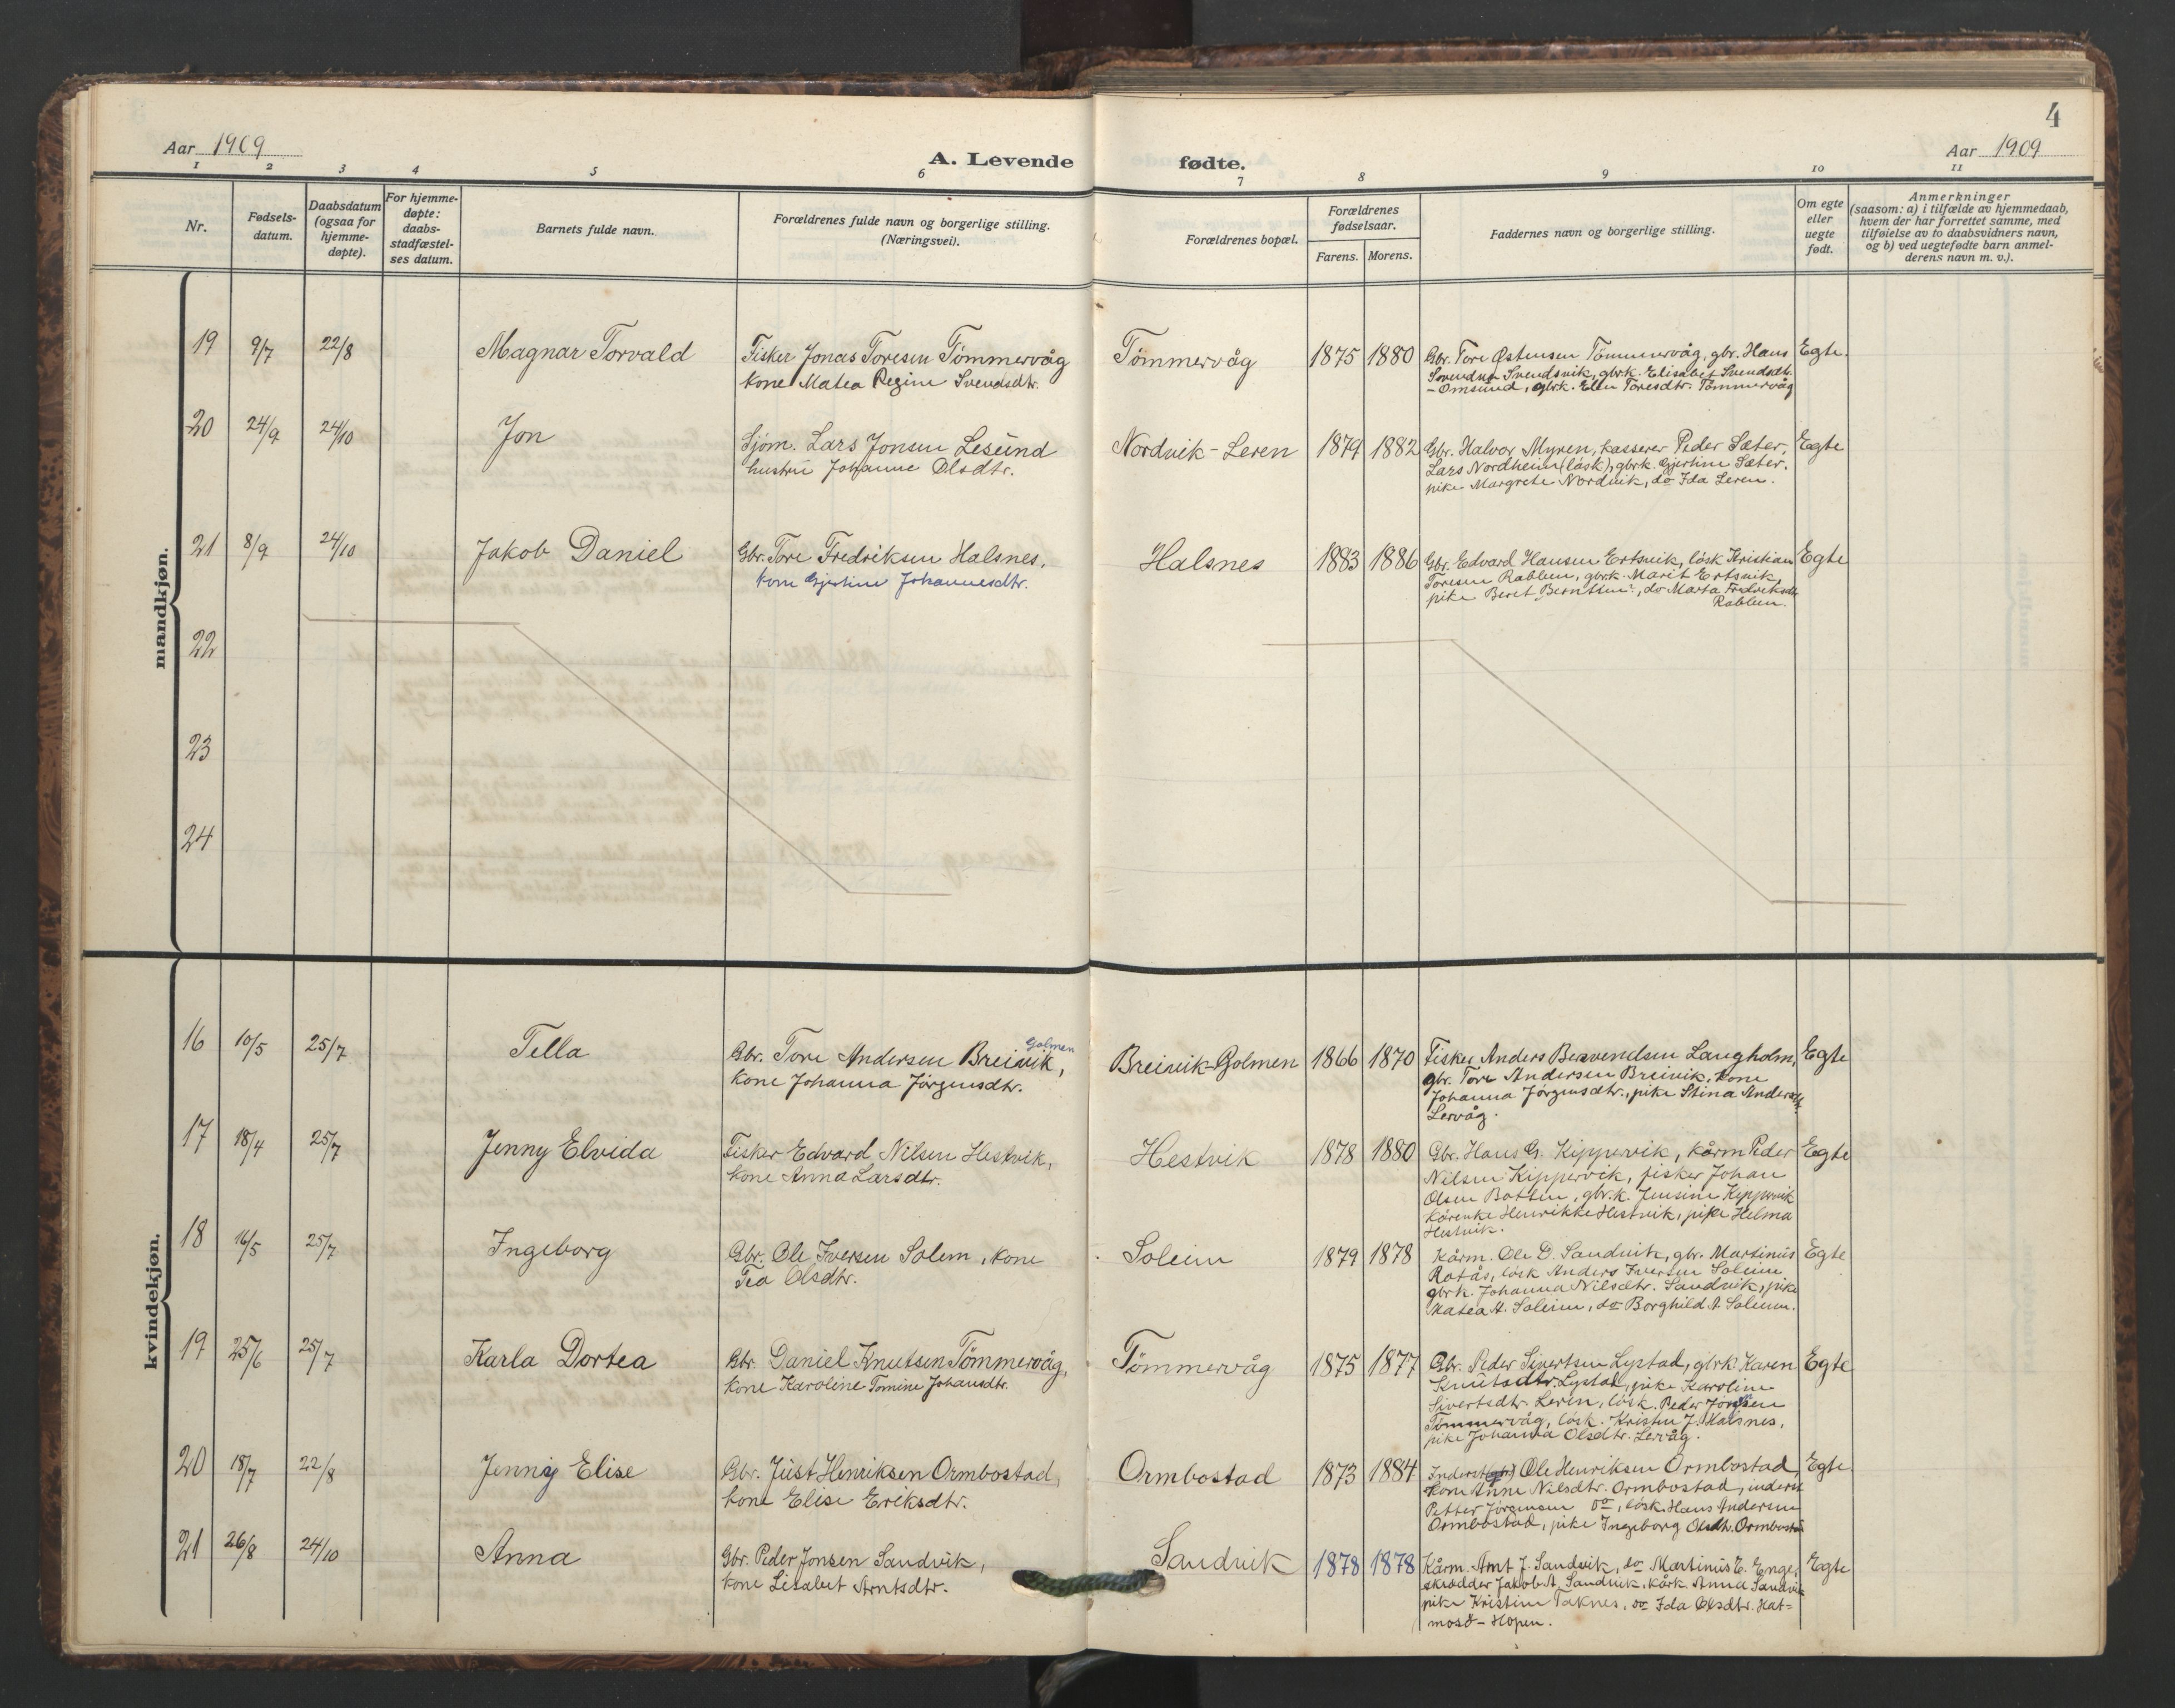 4
Aar 1909
A. Levende fødte.
Aar 1909
1 2 3 4 5 6 7 8 9 10 11
Nr.
Fødsels-
datum.
Daabsdatum
(ogsaa for
hjemme-
døpte).
For hjemme-
døpte:
daabs-
stadfæstel-
ses datum.
Barnets fulde navn.
Forældrenes fulde navn og borgerlige stilling.
(Næringsvei).
Forældrenes bopæl.
Forældrenes
fødselsaar.
Farens. Morens.
Faddernes navn og borgerlige stilling.
Om egte
eller
uegte
født.
Anmerkninger
(saasom: a) i tilfælde av hjemmedaab,
hvem der har forrettet samme, med
tilføielse av to daabsvidners navn,
og b) ved uegtefødte barn anmel-
derens navn m. v.).
mandkjøn.
19 9/7 22/8 Magnar Torvald
Fisker Jonas Toresen Tömmervåg
kone Matea Regine Svendsdtr.
Tömmervåg 1875 1880
Gbr. Tore Østensen Tömmervåg, gbr. Hans
Svendsen Svendsvik, gbrk. Elisabet Svendsdtr.
- Omsund, gbrk. Elen Toresdtr. Tömmervåg
Egte.
20 24/9 24/10 Jon
Sjöm. Lars Jonsen Lesund
hustru Johanne Olsdtr.
Nordvik - Leren 1879 1882
Gbr. Halvor Myren, kasserer Peder Sæter,
Lars Nordheim (lösk), gbrk. Gjertine Sæter.
pike Margrete Nordvik, do Ida Leren.
Egte
21 8/9 24/10 Jakob Daniel
Gbr. Tore Fredriksen Halsnes,
kone Gjertine Johannesdtr.
Halsnes 1883 1886
Gbr. Edvard Hansen Ertsvik, lösk Kristian
Toresen Rablen, gbrk. Marit Ertsvik,
pike Beret Berntsen, do Marta Fredriksdtr.
Rablen.
Egte
22
23
24
kvindekjøn.
16 10/5 25/7 Tella
Golmen
Gbr. Tore Andersen Breivik,
kone Johanna Jörgensdtr.
Breivik-Golmen 1866 1870
Fisker Anders Langholm,
gbr. Tore Andersen Breivik, kone
Johanna Jörgensdtr., pike Stina Andersdtr.
Lervåg.
Egte
17 18/4 25/7 Jenny Elvida
Fisker Edvard Nilsen Hestvik,
kone Anna Larsdtr.
Hestvik 1878 1880
Gbr. Hans G. Kippervik, kårm Peder
Nilsen Kippervik, fisker Johan
Olsen Botten, gbr.k. Jensine Kippervik
kårenke Henrikke Hestvik, pike Helma
Hestvik.
Egte
18 16/5 25/7 Ingeborg
Gbr. Ole Iversen Solem, kone
Tea Olsdtr.
Soleim 1879 1878
Kårm. Ole D. Sandvik, gbr. Martinus
Rotås, lösk Anders Iversen Soleim
gbrk. Johanna Nilsdtr. Sandvik, pike
Matea A. Soleim, do Borghild A. Soleim.
Egte
19 25/6 25/7 Karla Dortea
Gbr. Daniel Knutsen Tömmervåg,
kone Karoline Tomine Johansdtr.
Tömmervåg 1875 1877
Gbr. Peder Sivertsen Lystad, gbrk Karen
Knutsdtr. Lystad, pike Karoline
Sivertsdtr. Leren, lösk. Peder
Tömmervåg, lösk. Kristen J. Halsnes,
pike Johanna Olsdtr. Lervåg.
Egte
20 18/7 22/8 Jenny Elise
Gbr. Just Henriksen Ormbostad,
kone Elise Eriksdtr.
Ormbostad 1873 1884
Inderst Ole Henriksen Ormbostad,
kone Anne Nilsdtr. Ormbostad, inderst
Petter Jörgensen do, lösk. Hans Andersen
Ormbostad, pike Ingeborg Olsdtr. Ormbostad
Egte.
21 26/8 24/10 Anna
Gbr. Peder Jonsen Sandvik,
kone Lisabet Arntsdtr.
Sandvik 1878 1878
Kårm. Arnt J. Sandvik, do Martinus E. Enge,
skrædder Jakob A. Sandvik, kårk. Anna Sandvik
pike Kristine Taknes, do Ida Olsdtr. Hat=
mosö - Hopen.
Egte